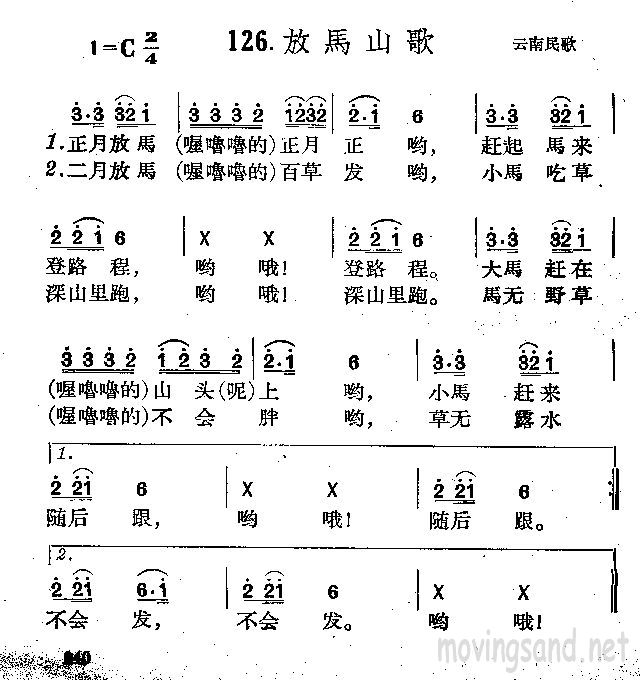 1=C 2/4 126.放馬山歌 云南民歌
3·3 321 | 3 3 3 2 1232 | 2·1 6 | 3·3 321 |
1.正月放馬(喔嚕嚕的)正月 正 哟, 赶起 馬来
2.二月放馬(喔嚕嚕的)百草 发 哟, 小馬 吃草
2 2 1 6 | X X | 2 2 1 6 | 3·3 321 |
登路 程, 哟 哦! 登路 程。 大馬 赶在
深山里跑, 哟 哦! 深山里跑。 馬无 野草
3 3 3 2 1 2 3 | 2·1 6 | 3·3 321
(喔嚕嚕的)山 头(呢)上 哟, 小馬 赶来
(喔嚕嚕的)不 会 胖 哟, 草无 露水
1.
2 21 6 | X X | 2 21 6 :|
随后 跟, 哟 哦! 随后 跟。
2.
2 21 6·1 | 2 21 6 | X X ‖
不会 发, 不会 发。 哟 哦!
240
movingsand.net